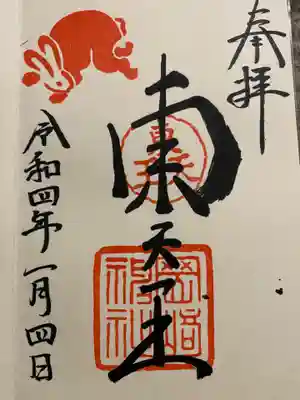 奉拝
東天王
岡崎
神社
令和四年一月四日